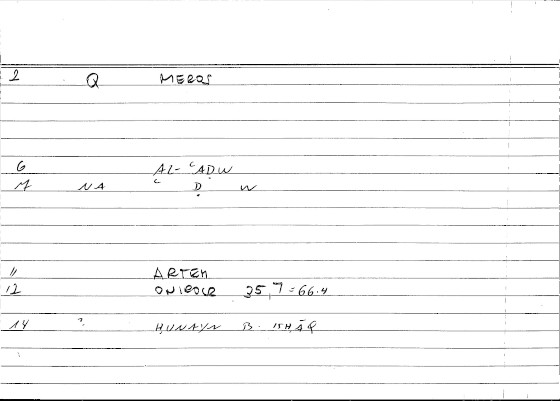 2 Q MEROS
6 AL-ʿAḌW
M NA ʿ Ḍ W
11 ARTEM
12 ONIROCR 35,7=66.4
14 ? ḤUNAYN B. ISḤĀQ